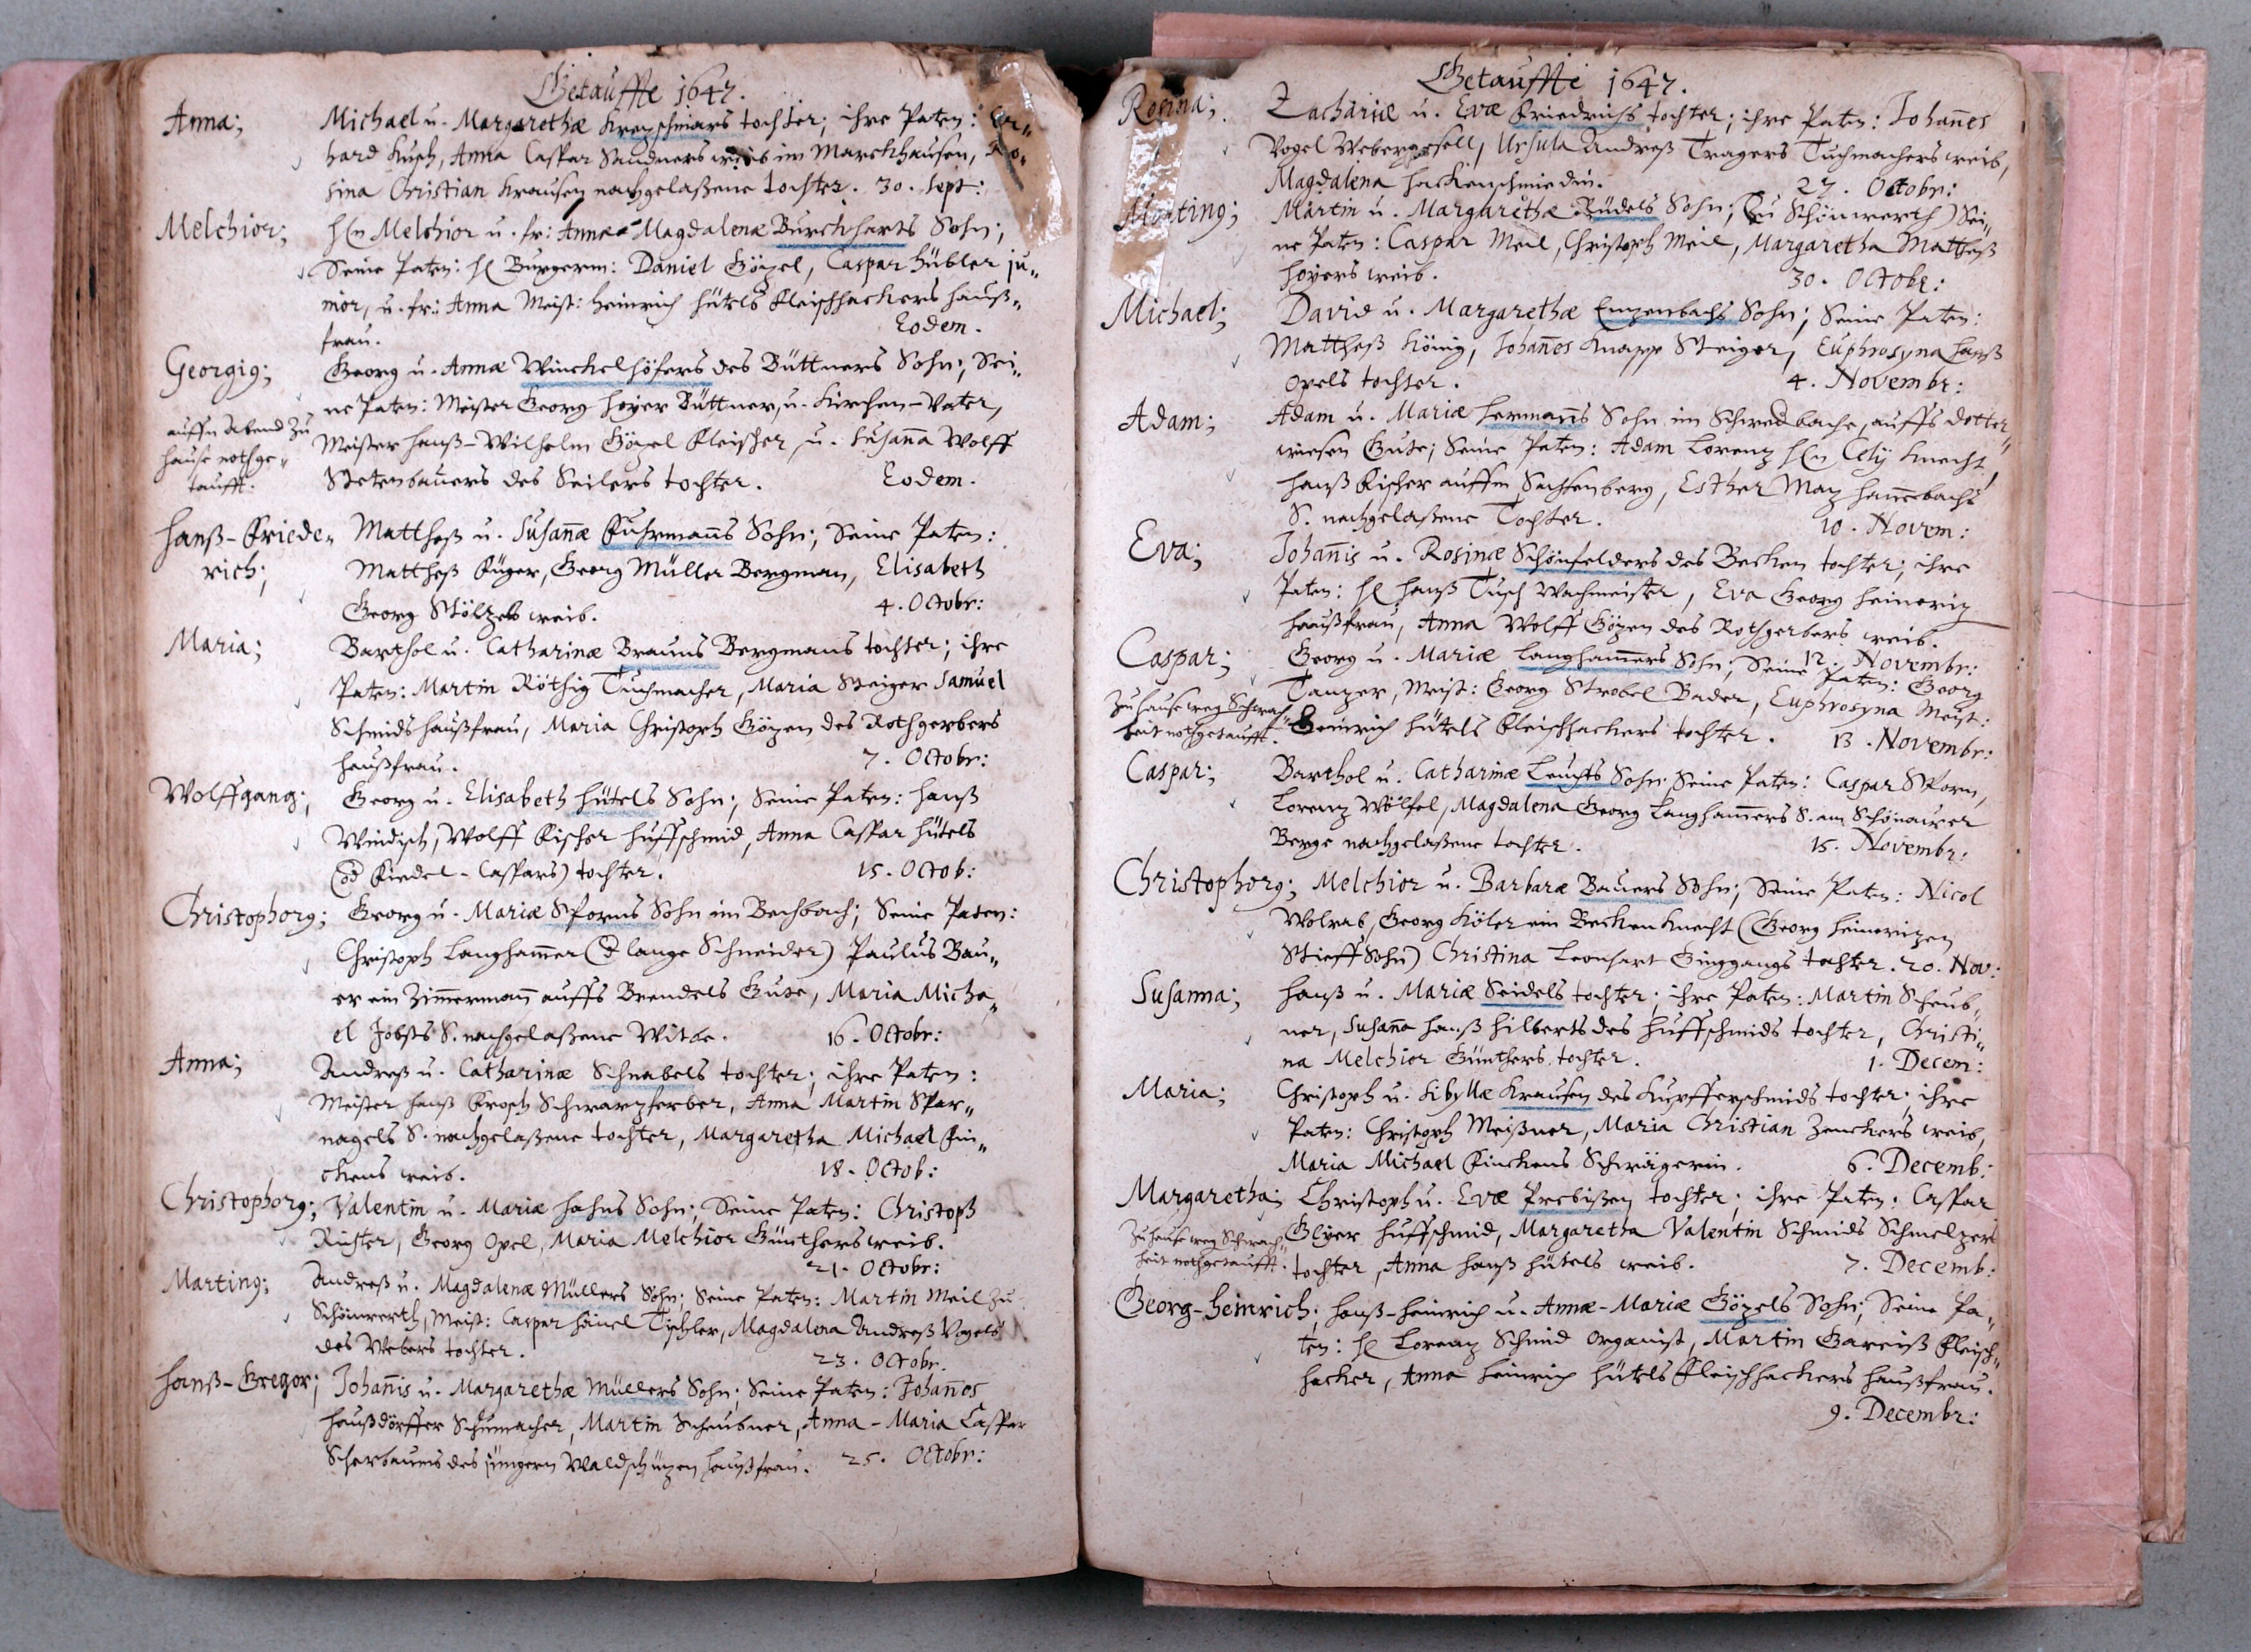 Getauffte 1647.
Anna; Michael u. Margarethæ Krezschmars tochter; ihre Paten: Er„
hard Kusch, Anna Caspar Saudners weib im Marckhausen, Ro„
sina Christian Krausen nachgelaßene tochter. 30. Sept:
Melchior; Melchior u. fr: Annæ-Magdalenæ Burckharts Sohn;
Seine Paten: Burgerm: Daniel Göpel, Caspar Hübler ju„
nior, u. fr: Anna Meist: Heinrich Hütels Fleischhackers Hauß„
frau. Eodem.
Georgig; Georg u. Annæ Winckelhöfers des Büttners Sohn; Sei„
ne Paten: Meister Georg Hoyer Büttner, u. Kirchen-Vater,
auffn Abend zu
Hause nothge„
taufft.
Meister Hanß-Wilhelm Göpel Fleischer, u. Susanna Wolff
Stetenbauers des Seilers tochter. Eodem.
Hanß-Friede„
rich; Mattheß u. Susannæ Fuhrmanns Sohn; Seine Paten:
Mattheß Füger, Georg Müller Bergman, Elisabeth
Georg Stölzels weib. 4. Octobr:
Maria; Barthol u. Catharinæ Brauns Bergmans tochter; ihre
Paten: Martin Röthig Tuchmacher, Maria Steiger Samuel
Schmids Haußfrau, Maria Christoph Göpen des Rothgerbers
Haußfrau. 7. Octobr:
Wolffgang; Georg u. Elisabeth Hütels Sohn; Seine Paten: Hanß
Windisch, Wolff Fischer Huffschmid, Anna Caspar Hütels
Fiedel-Caspars) tochter. 15. Octob:
Christophorg; Georg u. Mariæ Sporns Sohn im Bechbach; Seine Paten:
Christoph Langhammer (d lange Schneider) Paulus Bau„
er ein Zimmermann auffs Brendels Gute, Maria Micha„
el Jobsts S. nachgelaßene Witbe. 16. Octobr:
Anna; Andreß u. Catharinæ Schnabels tochter; ihre Paten:
Meister Hanß Frosch Schwarzferber, Anna Martin Spar„
nagels S. nachgelaßene tochter, Margaretha Michael Fin„
ckens weib. 18. Octob:
Christophorg; Valentin u. Mariæ Hahns Sohn; Seine Paten: Christoph
Richter, Georg Opel, Maria Melchior Günthers weib.
21. Octobr:
Marting; Andreß u. Magdalenæ Müllers Sohn; Seine Paten: Martin Meil zu
Schönwerth, Meist: Caspar Hänel Tischler, Magdalena Andreß Vogels
des Webers tochter. 23. Octobr.
Hanß-Gregor; Johannis u. Margarethæ Müllers Sohn; Seine Paten: Johannes
Haußdörffer Schumacher, Martin Scheubner, Anna-Maria Caspar
Scherbaums des jüngern Waldschüzen Haußfrau. 25. Octobr:
Getauffte 1647.
Rosina; Zachariæ u. Evæ Friedrichs tochter; ihre Paten: Johannes
Vogel Webergesell, Ursula Andreß Tragers Tuchmachers weib,
Magdalena Hackenschmiedin. 27. Octobr:
Marting; Martin u. Margarethæ Rüdels Sohn; (zu Schönwerth) Sei„
ne Paten: Caspar Meil, Christoph Meil, Margaretha Mattheß
Hoyers weib. 30. Octobr:
Michael; David u. Margarethæ Enzenbachs Sohn; Seine Paten:
Mattheß König, Johannes Knapp Steiger, Euphrosyna Hanß
Opels tochter. 4. Novembr:
Adam; Adam u. Mariæ Hermanns Sohn im Schwedbache, auffs Dotter„
wiesen Gute; Seine Paten: Adam Lorenz Knecht,
Hanß Fischer auffm Sachsenberg, Esther Maz Hannebachs
S. nachgelaßene Tochter. 10. Novem:
Eva; Johannis u. Rosinæ Schönfelders des Becken tochter; ihre
Paten: Hanß Tusch Wachmeister, Eva Georg Heinoriz
Haußfrau, Anna Wolff Göpen des Rothgerbers weib.
12. Novembr:
Caspar; Georg u. Mariæ Langhammers Sohn; Seine Paten: Georg
Tanzer, Meist: Georg Strobel Bader, Euphrosyna Meist:
zu Hause weg. Schwach„
heit nothgetaufft.
Heinrich Hütels Fleischhackers tochter. 13. Novembr:
Caspar; Barthol u. Catharinæ Leuchts Sohn; Seine Paten: Caspar Sporn,
Lorenz Wölfel, Magdalena Georg Langhammers S. am Schönauer
Berge nachgelaßene tochter. 15. Novembr:
Christophorg; Melchior u. Barbaræ Bauers Sohn; Seine Paten: Nicol
Wolrab, Georg Köler ein Becken Knecht (Georg Heinorizen
Stieff Sohn) Christina Leonhart Ginggangs tochter. 20. Nov:
Susanna; Hanß u. Mariæ Seidels tochter; ihre Paten: Martin Scheub„
ner, Susanna Hanß Hilberts des Huffschmids tochter, Christi„
na Melchior Günthers tochter. 1. Decem:
Maria; Christoph u. Sibyllæ Krausen des Kupfferschmids tochter; ihre
Paten: Christoph Meißner, Maria Christian Zenckers weib,
Maria Michael Finckens Schwägerin. 6. Decemb:
Margaretha; Christoph u. Evæ Prebißen tochter; ihre Paten: Caspar
Glyer Huffschmid, Margaretha Valentin Schmids Schmelzers
zu Hause weg. Schwach„
heit nothgetaufft.
tochter, Anna Hanß Hütels weib. 7. Decemb:
Georg-Heinrich; Hanß-Heinrich u. Annæ-Mariæ Göpels Sohn; Seine Pa„
ten: Lorenz Schmid Organist, Martin Gareiß Fleisch„
hacker, Anna Heinrich Hütels Fleischhackers Haußfrau.
9. Decembr: